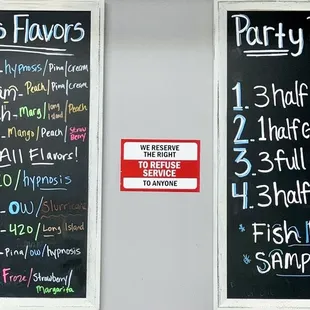 s Flavors
hypnosis/Pina/cream
Peach/Pina/cream
Marg/long Island/Peach
Mango/Peach/Straw Berry
All Flavors!
20/hypnosis
OW/Slurricane
420/Long Island
Pina/OW/hypnosis
Froze/Strawberry/
Margarita
WE RESERVE
THE RIGHT
TO REFUSE
SERVICE
TO ANYONE
Party
1. 3 half
2. 1 half
3. 3 full
4. 3 half
* Fish
* SAMP